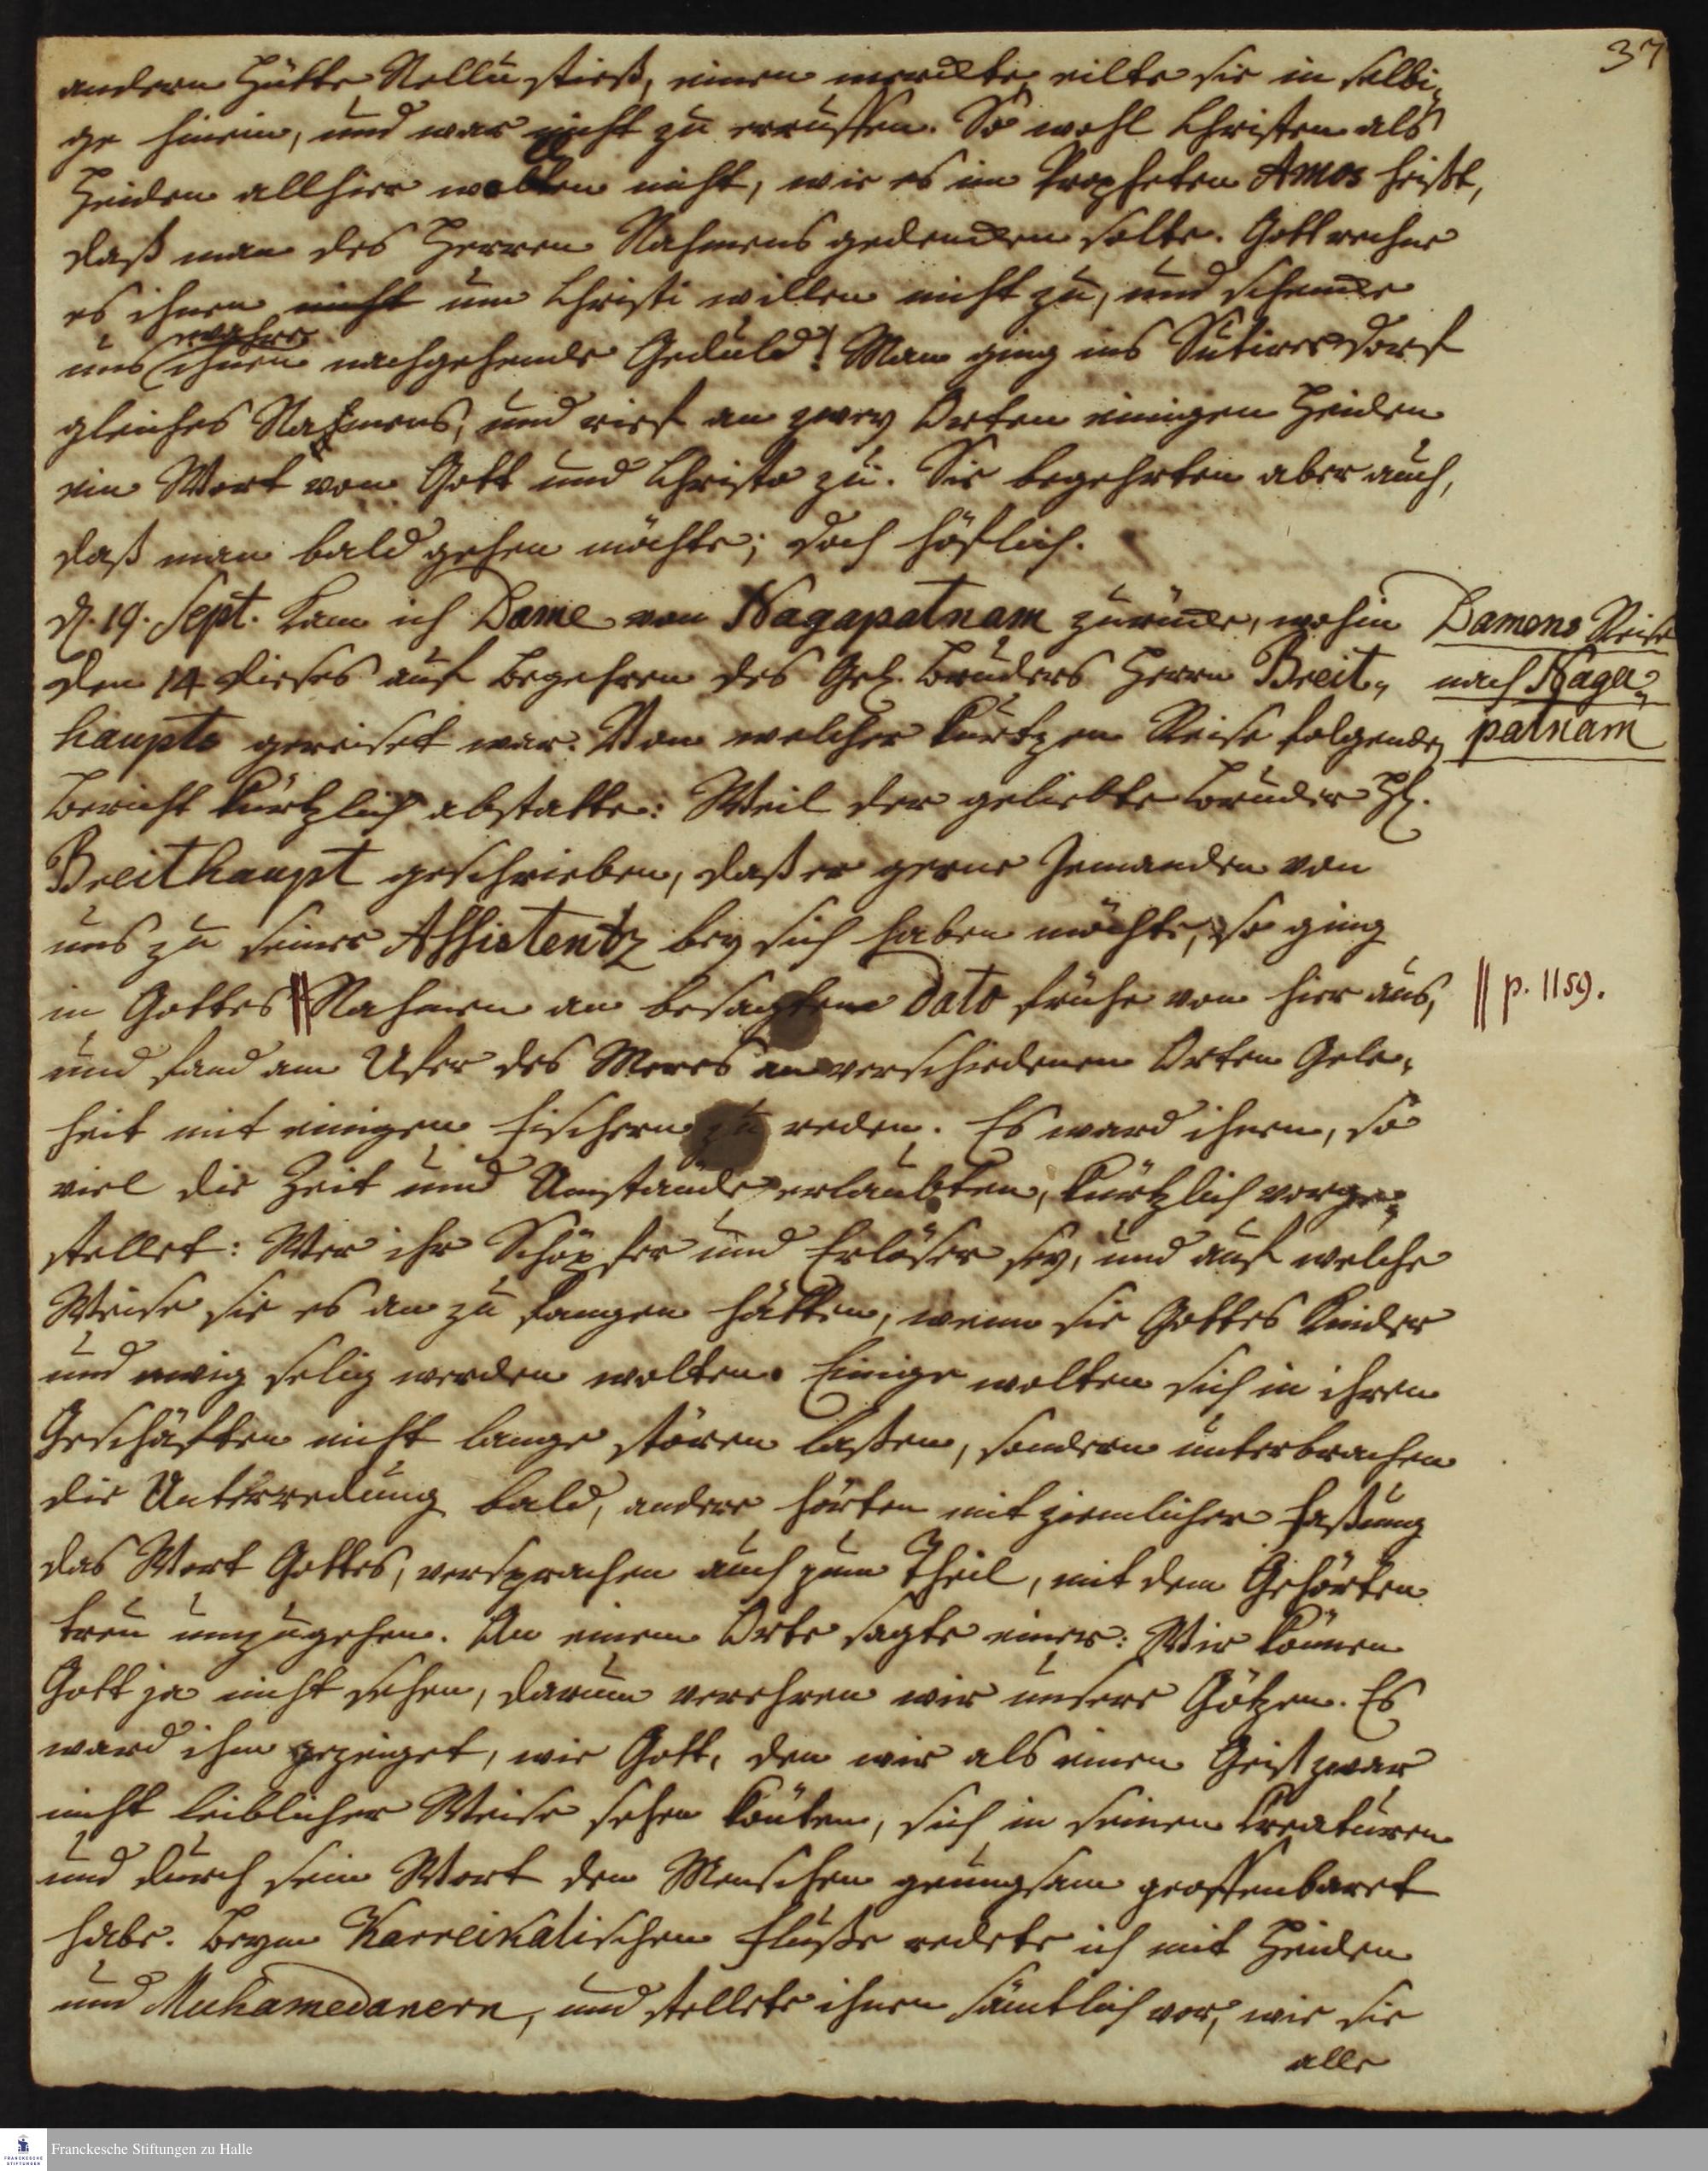 37
andern Hütte Nellu stieß, einen merckte, eilte sie in selbi-
ge hinein, und war nicht zu erruffen. So wohl Christen als
Heiden allhier wollen nicht, wie es im Propheten Amos heißt,
daß man des Herren Nahmens gedencken solte. Gott rechne
es ihnen nicht um Christi willen nicht zu, und schencke
uns ihnen nachgehende Gedult! Man ging ins Sutirer Dorf
gleiches Nahmens, und rief an zwey Orten einigen Heiden
ein Wort von Gott und Christo zu. Sie begehrten aber auch,
daß man bald gehen möchte; doch höflich.
d. 19. Sept. kam ich Dame von Nagapatnam zurück, wohin
den 14 dieses auf Begehren des Gel. Bruders Herrn Breit-
haupts gereiset war. Von welcher kurtzen Reise folgenden
Bericht kürtzlich abstatte: Weil der geliebte Bruder H.
Breithaupt geschrieben, daß er gerne Jemanden von
uns zu seiner Assistentz bey sich haben möchte, so ging
in Gottes || Nahmen an besagtem Dato frühe von hier aus,
und fand am Ufer des Meeres an verschiedenen Orten Gele-
heit mit einigen Fischern zu reden. Es ward ihnen, so
viel die Zeit und Umstände erlaubten, kürtzlich vorge-
stellet: Wer ihr Schöpfer und Erlöser sey, und auf welche
Weise sie es an zu fangen hätten, wenn sie Gottes Kinder
und ewig selig werden wolten. Einige wolten sich in ihren
Geschäften nicht lange stören laßen, sondern unterbrachen
die Unterredung bald, andere hörten mit ziemlicher Faßung
das Wort Gottes, versprachen auch zum Theil, mit dem Gehörten
treu umzugehen. An einem Orte sagte einer: Wir können
Gott ja nicht sehen, darum verehren wir unsere Götzen. Es
ward ihm gezeiget, wie Gott, den wir als einen Geist zwar
nicht leiblicher Weise sehen könten, sich in seinen Creaturen
und durch sein Wort den Menschen genungsam geoffenbaret
habe. Beym Karreikalischen Fluße redete ich mit Heiden
und Muhamedanern, und stellete ihnen sämtlich vor, wie sie
alle
Damens Reise
nach Naga-
patnam
|| p. 1159.
Franckesche Stiftungen zu Halle
FRANCKESCHE
STIFTUNGEN